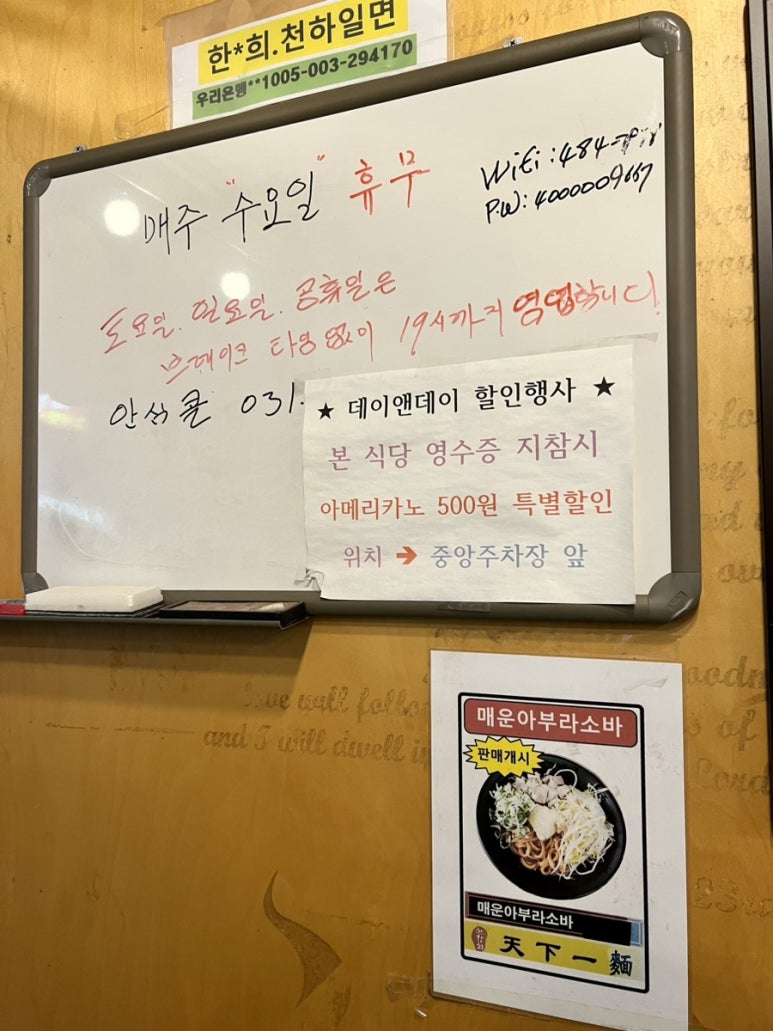 한*희.천하일면
우리은행**1005-003-294170
매주 "수요일" 휴무
WiFi : 484-
P.W : 4000009667
토요일. 일요일. 공휴일은
브레이크 타임 없이 19시까지 영업합니다!
안성콜 031.
★ 데이앤데이 할인행사 ★
본 식당 영수증 지참시
아메리카노 500원 특별할인
위치 → 중앙주차장 앞
love will follow
and I will dwell in
매운아부라소바
판매개시
매운아부라소바
天下一麵